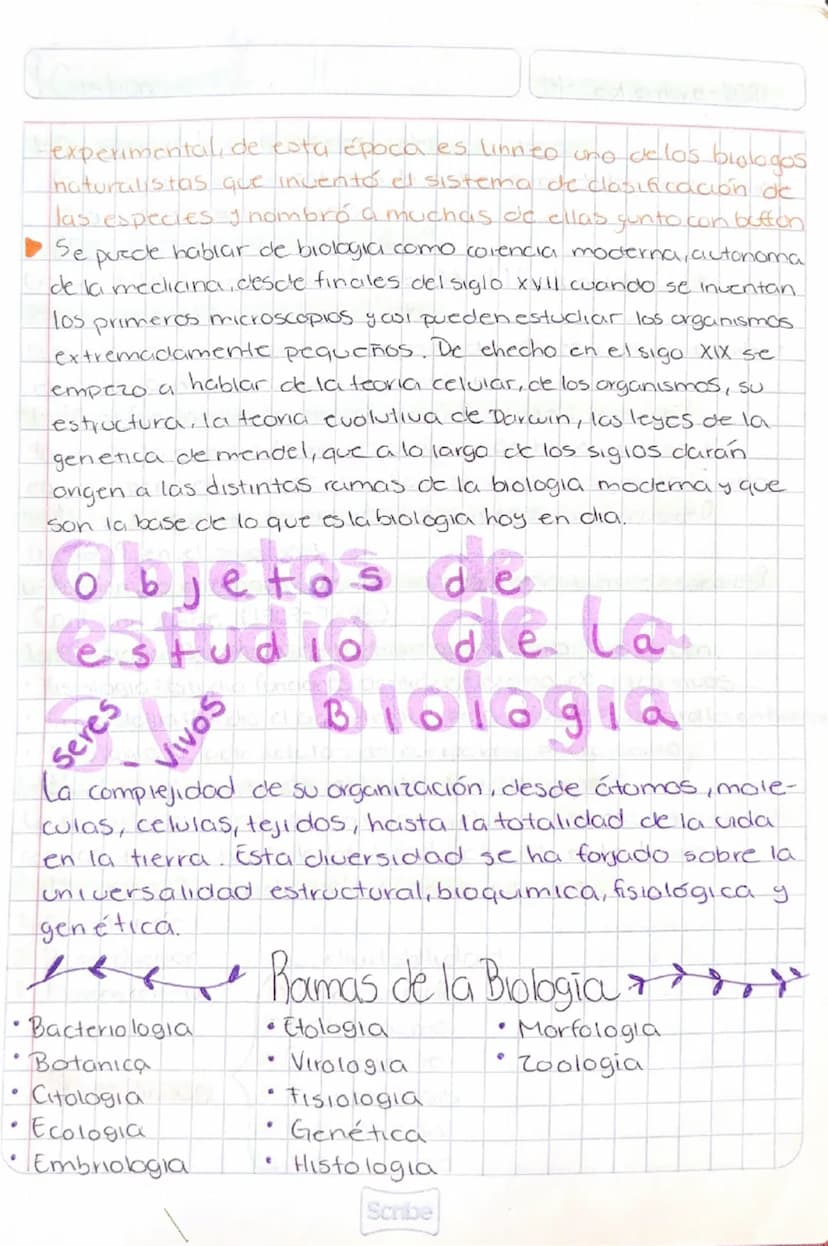 experimental, de esta época es Linneo uno de los biologos
naturalistas que inventó el sistema de clasificación de
las especies y nombró a muchas de ellas junto con buffon
Se puede hablar de biologia como coiencia moderna, autonoma
de la medicina, desde finales del siglo XVII cuando se inventan
los primeros microscopios y asi pueden estudiar los organismos
extremadamente pequeños. De ehecho en el sigo XIX se
empezo a hablar de la teoria celular, de los organismos, su
estructura, la teoria evolutiva de Darwin, las leyes de la
genetica de mendel, que a lo largo de los siglos darán
origen a las distintas ramas de la biologia moderna y que
son la base de lo que es la biologia hoy en dia.
Objetos de
estudio de la
Biologia
seres - vivos
La complejidad de su organización, desde átomos, mole-
culas, celulas, tejidos, hasta la totalidad de la vida
en la tierra. Esta diversidad se ha forjado sobre la
universalidad estructural, bioquimica, fisiológica y
genética.
Ramas de la Biologia
• Bacteriologia
• Botanica
• Citologia
• Ecologia
• Embriologia
• Etologia
• Virologia
• Fisiologia
• Genética
• Histologia
• Morfologia
• Zoologia
Scribe